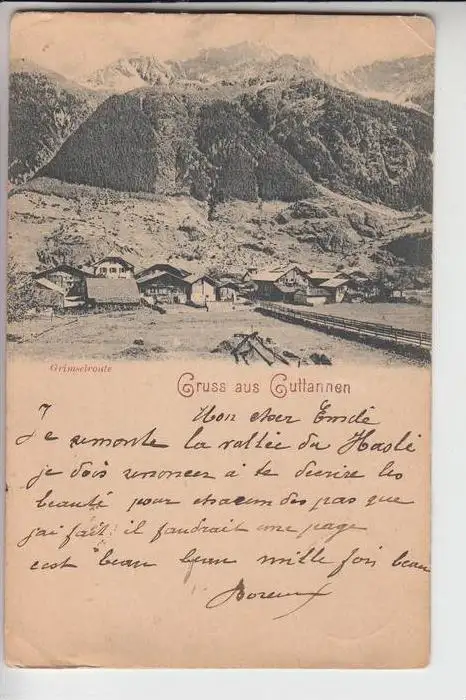 Grimselroute
Gruss aus Guttannen
7
Mon cher Emile
Je remonte la vallée du Hasle
je dois renoncer à te decrire les
beauté pour chacun des pas que
j'ai fait il faudrait une page
c'est beau beau mille fois beau